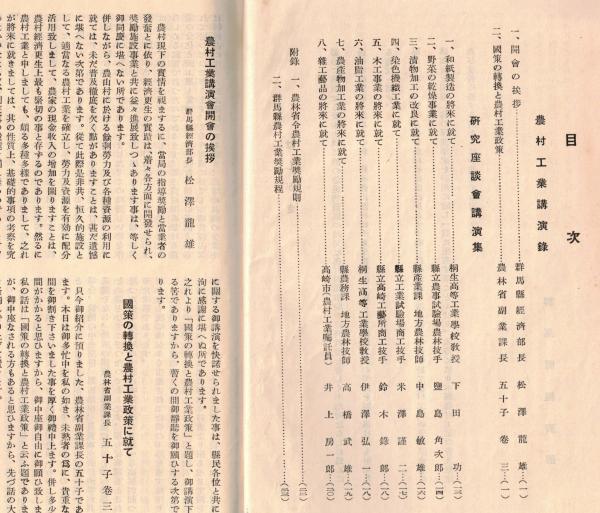 目次
農村工業講演錄
一、開會の挨拶……群馬縣經濟部長 松澤龍雄…(一)
二、國策の轉換と農村工業政策……農林省副業課長 五十子卷三…(一)
硏究座談會講演集
一、和紙製造の將來に就て……桐生高等工業學校教授 下田功…(一三)
二、野菜の乾燥事業に就て……縣立農事試驗場農林技師 鹽島角次郎…(一四)
三、漬物加工の改良に就て……縣產業課 地方農林技師 中島敏雄…(一六)
四、染色機織工業に就て……縣立工業試驗場商工技手 米澤謹二…(一七)
五、木工事業の將來に就て……縣立高崎工藝所商工技手 鈴木錄郎…(一八)
六、油脂工業の將來に就て……桐生高等工業學校教授 伊澤弘一…(一八)
七、農產物加工業の將來に就て……縣農務課 地方農林技師 高橋武雄…(一九)
八、雜工藝品の將來に就て……高崎市(農村工業囑託員) 井上房一郎…(三〇)
附錄 一、農林省令農村工業奬勵規則
二、群馬縣農村工業奬勵規程
農村工業講演會開會の挨拶
群馬縣經濟部長 松澤龍雄
農村現下の實情を視まするに、當局の指導奬勵と當業者の
發奮とに依り、經濟更生の實績は、着々各方面に開發せられ、
奬勵施設事業と共に益々進展致しつゝあります事は、等しく
御同慶に堪へない所であります。
併しながら、農山村に於ける餘剩勞力及び各種資源の利用に
就ては、未だ普及徹底を欠く點がありますことは、甚だ遺憾
に堪へない次第であります。從て此際是非共、恒久的施設と
して、適當なる農村工業を確立し、勞力及資源を有効に配分
活用致しまして、農家の現金收入の增加を圖りますことは、
農村經濟更生上最も緊切の事と存ずるのであります。然るに
農村工業と申しましても、頗る多種多樣でありまして、之れ
が將來に就きましては、其の性質上、基礎的事項の考察を究
に關する御講演を快諾せられました事は、縣民各位と共に
洵に感謝に堪へぬ所であります。
之れより「國策の轉換と農村工業政策」と題し、御講演下
る筈でありますから、暫くの間御靜聽を御願ひする次第で
ります。
國策の轉換と農村工業政策に就て
農林省副業課長 五十子卷三
只今御紹介に預りました、農林省副業課長の五十子であ
ます。本日は御多忙中を私の如き、未熟者の爲に、貴重な
間を御割き下さいました事を厚く御禮申上ます。併し多少
間がかかると思ひますから、御中座御自由に御願ひ致しま
私の話は「國策の轉換と農村工業政策」と云ふ題でありま
が、御中座なされる方もあると思ひますから、先づ話の大